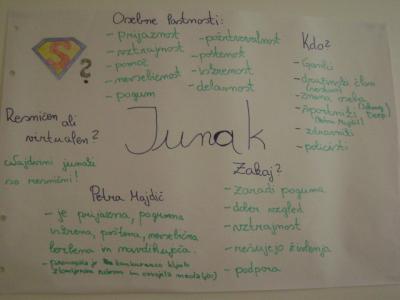 Osebne lastnosti:
- prijaznost
- vztrajnost
- pomoč
- nesebičnost
- pogum
- požrtvovalnost
- poštenost
- iskrenost
- delavnost
Kdo?
- Gasilci
- družinski član
- znana oseba
- športniki
(Petra Majdič)
- zdravniki
- policisti
S
?
Resničen ali
virtualen?
so resnični!
Junak
Zakaj?
- zaradi poguma
- dober vzgled
- vztrajnost
- rešujejo življenja
- podpora
Petra Majdič
- je prijazna, pogumna
iskrena, poštena, nesebična
borbena in navdihujoča.